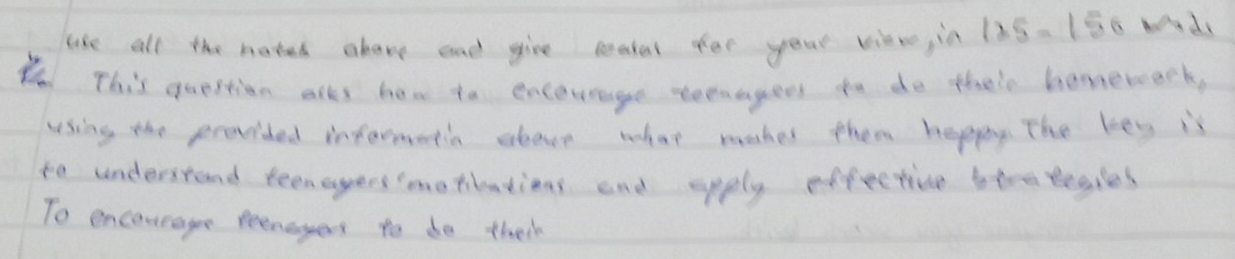 use all the notes above and give for your view, in 125 - 150 words
This question asks how to encourage teenagers to do their homework,
using the provided informatin above what makes them happy. The key is
to understand teenagers' motivations and apply effective strategies
To encourage teenagers to do their